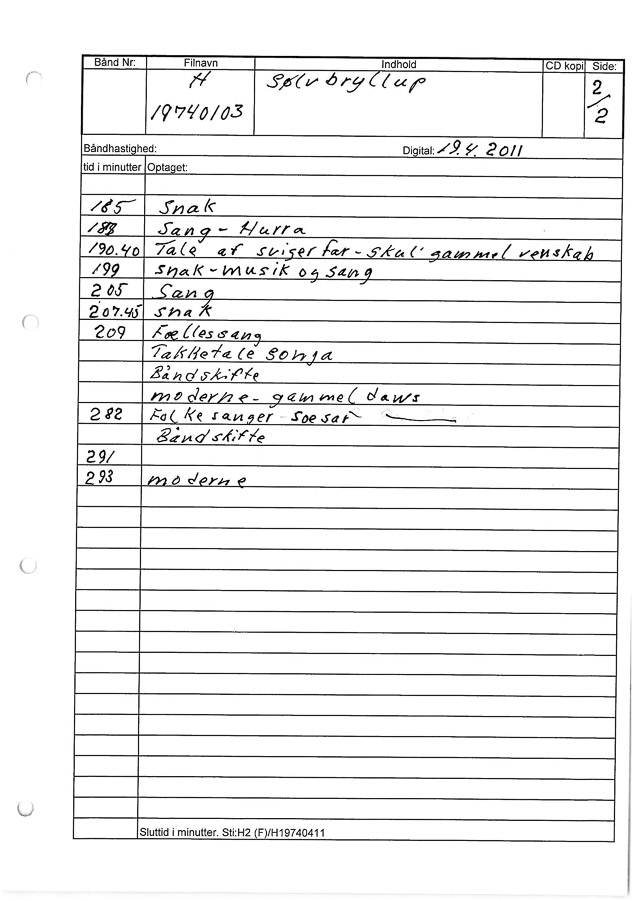 Bånd Nr: Filnavn Indhold CD kopi Side:
H Sølvbryllup 2/2
19740103
Båndhastighed: Digital: 19.4.2011
tid i minutter Optaget:
185 Snak
188 Sang - Hurra
190.40 Tale af svigerfar - skul gammel venskab
199 snak - musik og sang
205 Sang
207.45 snak
209 Fællessang
Takketale sonja
Båndskifte
moderne - gammel daws
282 Folkesanger -
Båndskifte
291
293 moderne
Sluttid i minutter. Sti:H2 (F)/H19740411